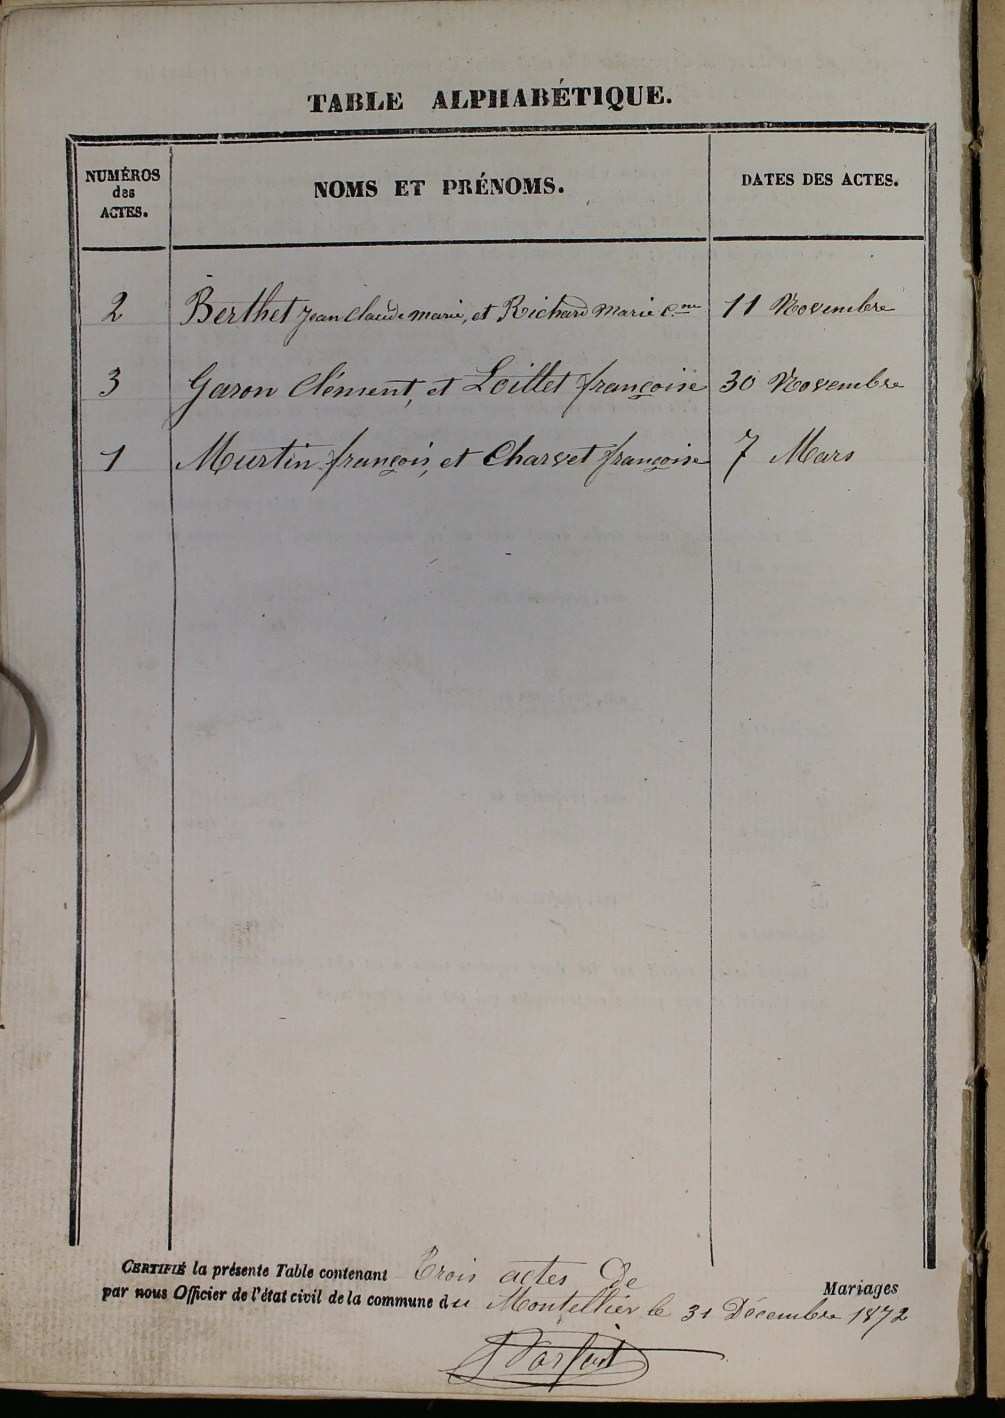 TABLE ALPHABÉTIQUE.
NUMÉROS
des
ACTES.
NOMS ET PRÉNOMS.
DATES DES ACTES.
2 Berthet Jean Claude marie, et Richard Marie C.ne 11 Novembre
3 Garon Clément, et Loillet françoise 30 Novembre
1 Murtin françois, et Charvet françoise 7 Mars
CERTIFIÉ la présente Table contenant Trois actes De Mariages
par nous Officier de l'état civil de la commune du Montellier le 31 Décembre 1872